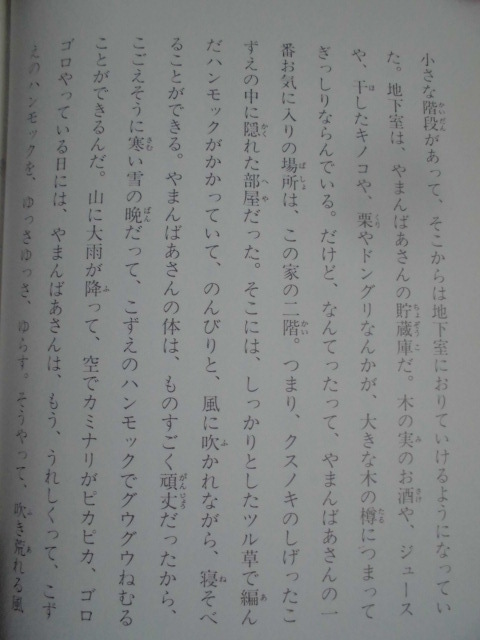 小さな階段があって、そこからは地下室におりていけるようになってい
た。地下室は、やまんばあさんの貯蔵庫だ。木の実のお酒や、ジュース
や、干したキノコや、栗やドングリなんかが、大きな木の樽につまって
ぎっしりならんでいる。だけど、なんてったって、やまんばあさんの一
番お気に入りの場所は、この家の二階。つまり、クスノキのしげったこ
ずえの中に隠れた部屋だった。そこには、しっかりとしたツル草で編ん
だハンモックがかかっていて、のんびりと、風に吹かれながら、寝そべ
ることができる。やまんばあさんの体は、ものすごく頑丈だったから、
こごえそうに寒い雪の晩だって、こずえのハンモックでグウグウねむる
ことができるんだ。山に大雨が降って、空でカミナリがピカピカ、ゴロ
ゴロやっている日には、やまんばあさんは、もう、うれしくって、こず
えのハンモックを、ゆっさゆっさ、ゆらす。そうやって、吹き荒れる風